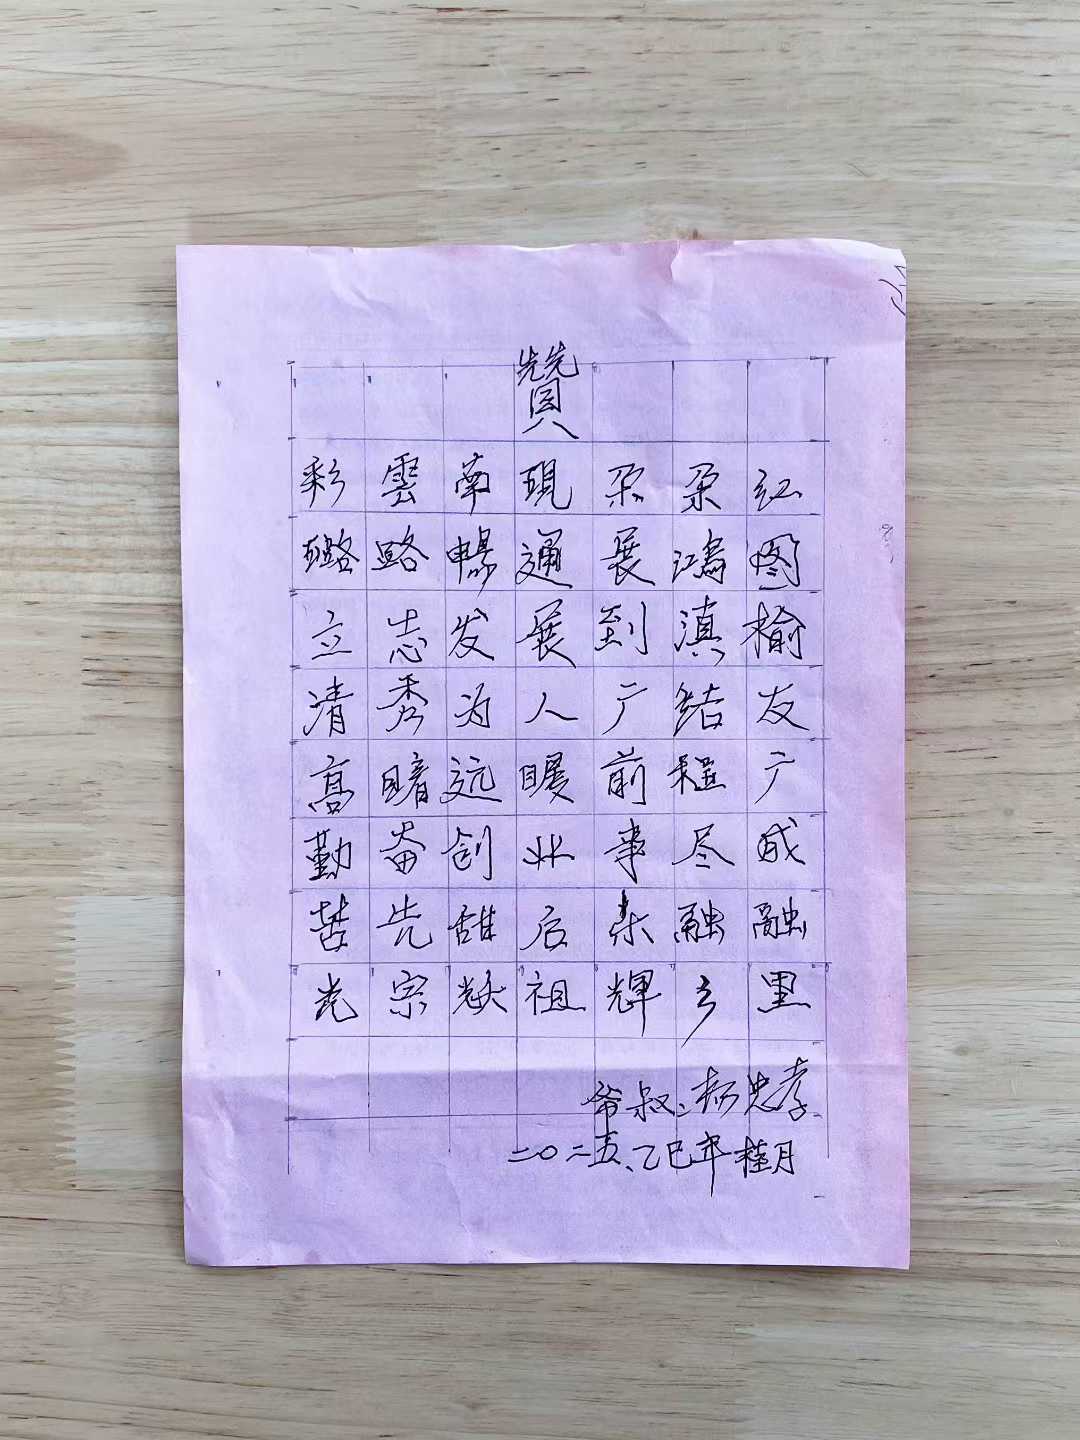 贊
彩雲南現朵朵红
璐路暢通展鴻图
立志发展到滇榆
清秀为人广结友
高瞻远瞩前程广
勤奋创业事尽成
苦先甜后乐融融
光宗耀祖輝乡里
爷叔:杨忠孝
二〇二五、乙巳年桂月